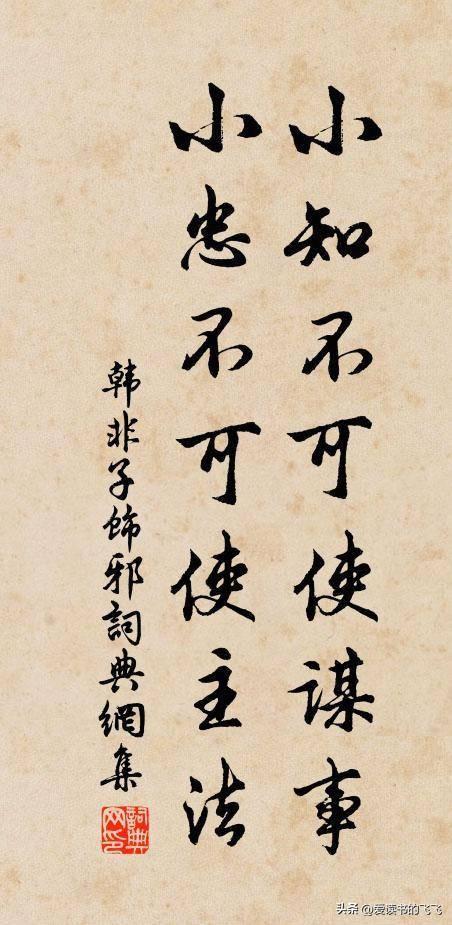 小知不可使谋事
小忠不可使主法
韩非子饰邪詞典網集
詞典网印
头条 @爱读书的飞飞